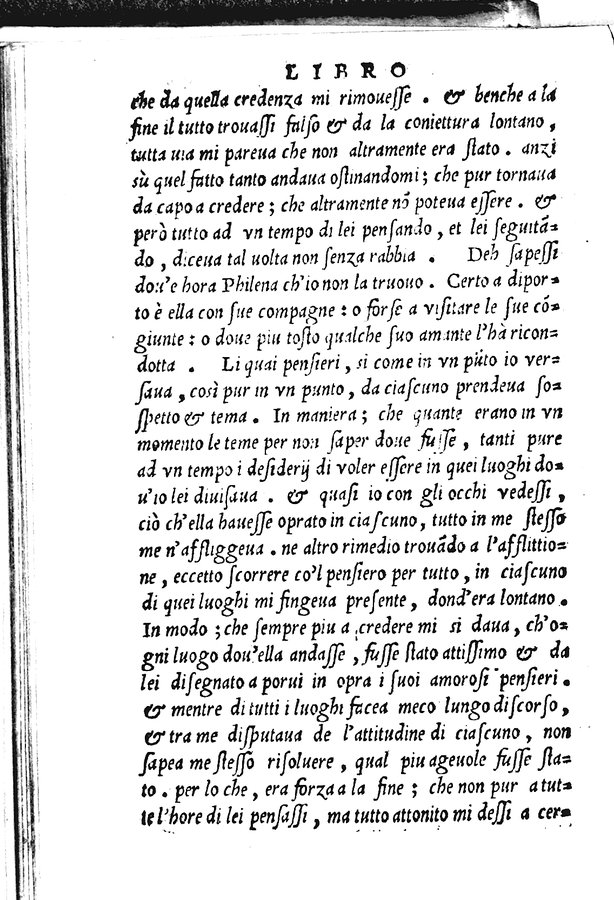 LIBRO
che da quella credenza mi rimouesse . & benche a la
fine il tutto trouassi falso & da la coniettura lontano ,
tutta uia mi pareua che non altramente era stato . anzi
sù quel fatto tanto andaua ostinandomi ; che pur tornaua
da capo a credere ; che altramente nõ poteua essere . &
però tutto ad vn tempo di lei pensando , et lei seguitã-
do , diceua tal uolta non senza rabbia . Deh sapessi
dou'e hora Philena ch'io non la truouo . Certo a dipor-
to è ella con sue compagne : o forse a visitare le sue cõ-
giunte : o doue piu tosto qualche suo amante l'hà ricon-
dotta . Li quai pensieri , si come in vn pũto io ver-
saua , così pur in vn punto , da ciascuno prendeua so-
spetto & tema . In maniera ; che quante erano in vn
momento le teme per non saper doue fusse , tanti pure
ad vn tempo i desiderij di voler essere in quei luoghi do-
u'io lei diuisaua . & quasi io con gli occhi vedessi ,
ciò ch'ella hauesse oprato in ciascuno , tutto in me stesso
me n'affliggeua . ne altro rimedio trouãdo a l'afflittio-
ne , eccetto scorrere co'l pensiero per tutto , in ciascuno
di quei luoghi mi fingeua presente , dond'era lontano .
In modo ; che sempre piu a credere mi si daua , ch'o-
gni luogo dou'ella andasse , fusse stato attissimo & da
lei disegnato a porui in opra i suoi amorosi pensieri .
& mentre di tutti i luoghi facea meco lungo discorso ,
& tra me disputaua de l'attitudine di ciascuno , non
sapea me stesso risoluere , qual piu ageuole fusse sta-
to . per lo che , era forza a la fine ; che non pur a tut-
te l'hore di lei pensassi , ma tutto attonito mi dessi a cer-